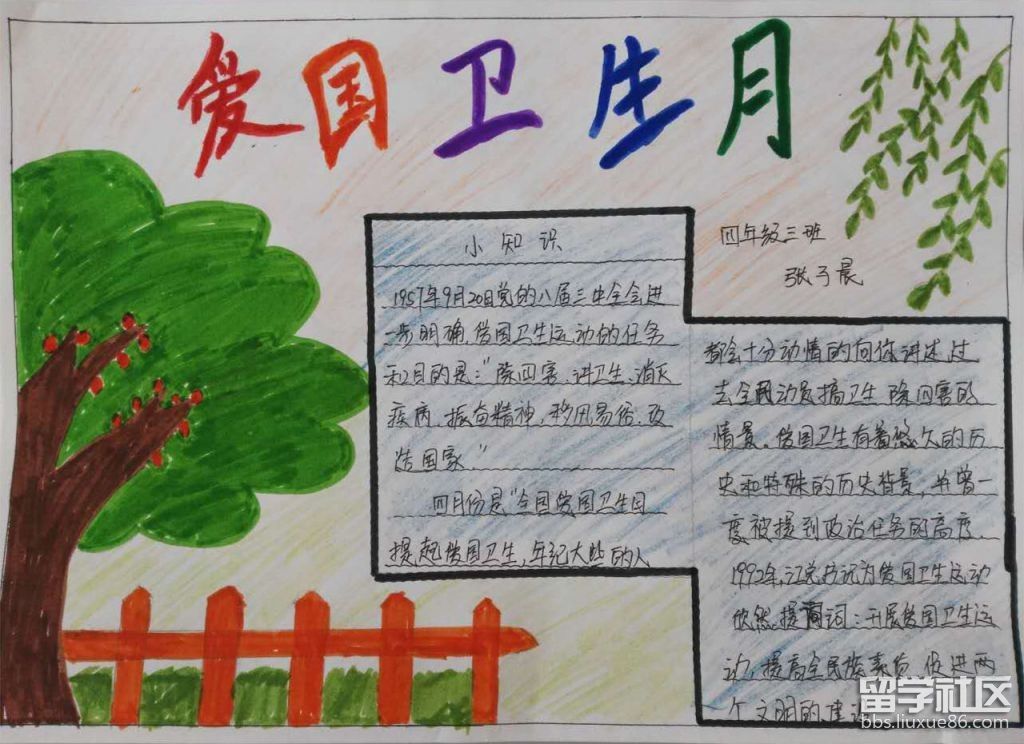 爱国卫生月
四年级三班
张子晨
小知识
1957年9月20日党的八届三中全会进
一步明确,爱国卫生运动的任务
和目的是:“除四害,讲卫生,消灭
疾病,振奋精神,移风易俗,改
造国家.”
四月份是“全国爱国卫生日
提起爱国卫生,年纪大些的人
都会十分动情的向你讲述,过
去全民动员搞卫生 除四害的
情景。爱国卫生有着悠久的历
史和特殊的历史背景,并曾一
度被提到政治任务的高度.
1992年,江总书记为爱国卫生运动
欣然提词:开展爱国卫生运
动,提高全民族素质,促进两
个文明的建设
留学社区
bbs.liuxue86.com